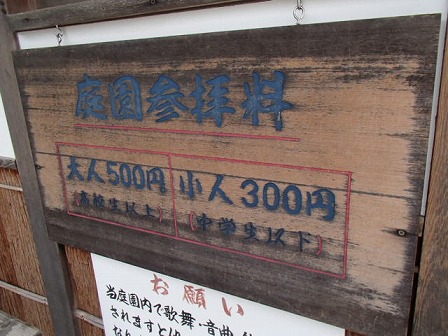 庭園参拝料
大人500円 小人300円
(高校生以上) (中学生以下)
お願い
当庭園内で歌舞・音曲
されますと